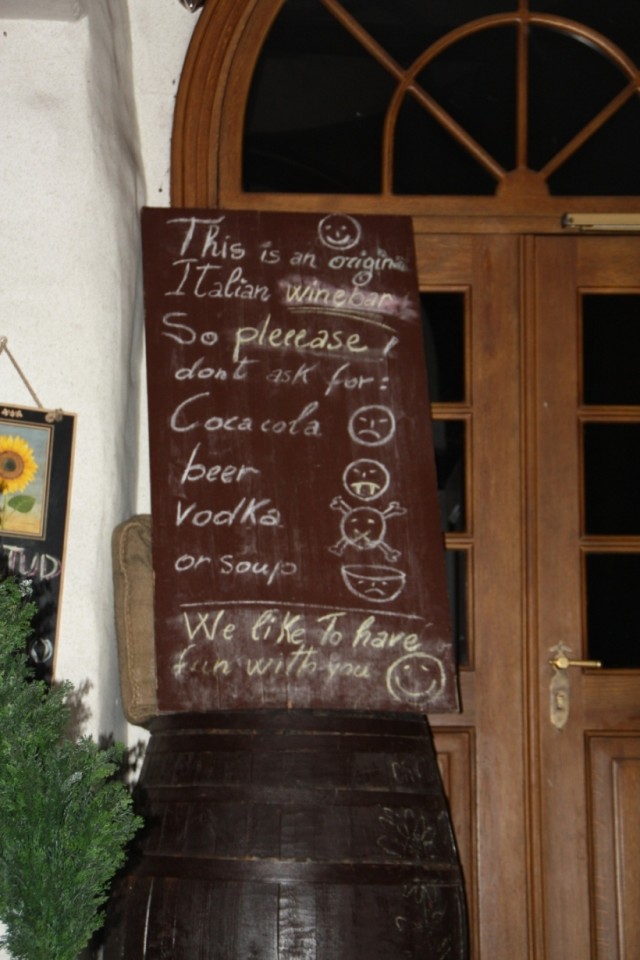 This is an original
Italian winebar
So pleeease !
dont ask for:
Coca cola
beer
vodka
or soup
We like To have
fun with you
TUD